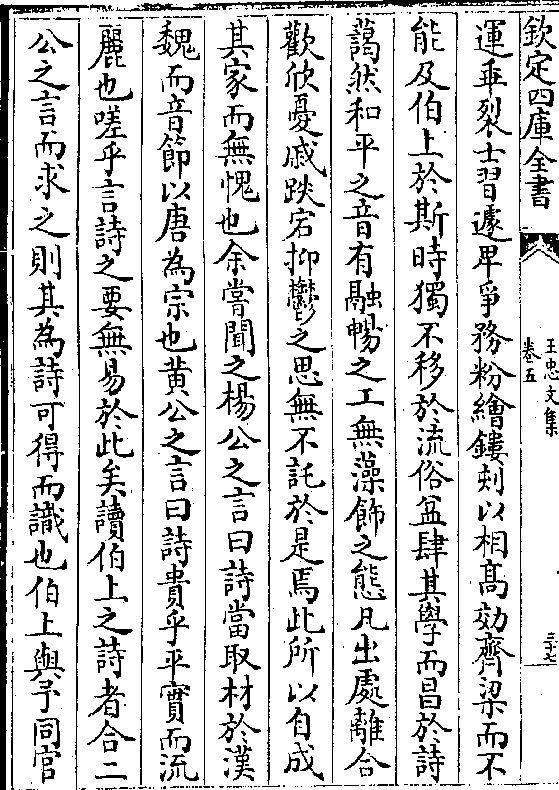 欽定四庫全書
王忠文集
卷五
三十七
運乖裂士習遽卑爭務粉繪鏤刻以相髙効齊梁而不
能及伯上於斯時獨不移於流俗益肆其學而昌於詩
藹然和平之音有融暢之工無藻飾之態凡出處離合
歡欣憂戚跌宕抑鬱之思無不託於是焉此所以自成
其家而無愧也余嘗聞之楊公之言曰詩當取材於漢
魏而音節以唐為宗也黄公之言曰詩貴乎平實而流
麗也嗟乎言詩之要無易於此矣讀伯上之詩者合二
公之言而求之則其為詩可得而識也伯上與予同官